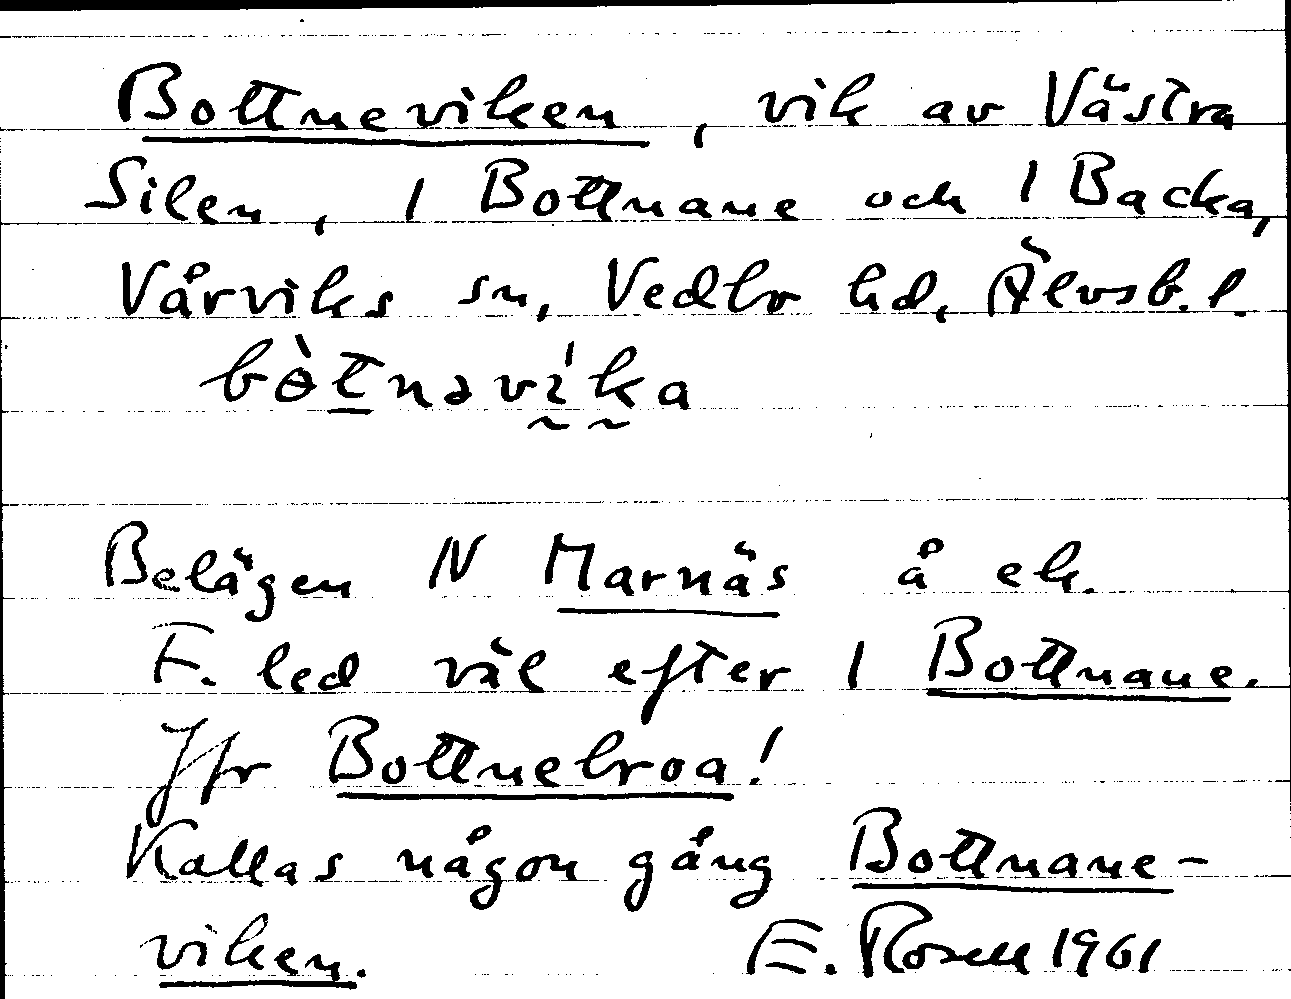 Bottneviken, vik av Västra
Silen, 1 Bottnane och 1 Backa,
Vårviks sn, Vedbo hd, Älvsb. l.
bòt̲nəvḭ̍k̰a
Belägen N Marnäs å ek.
F. led väl efter 1 Bottnane.
Jfr Bottnebroa!
Kallas någon gång Bottnane-
viken. E. Rosell 1961